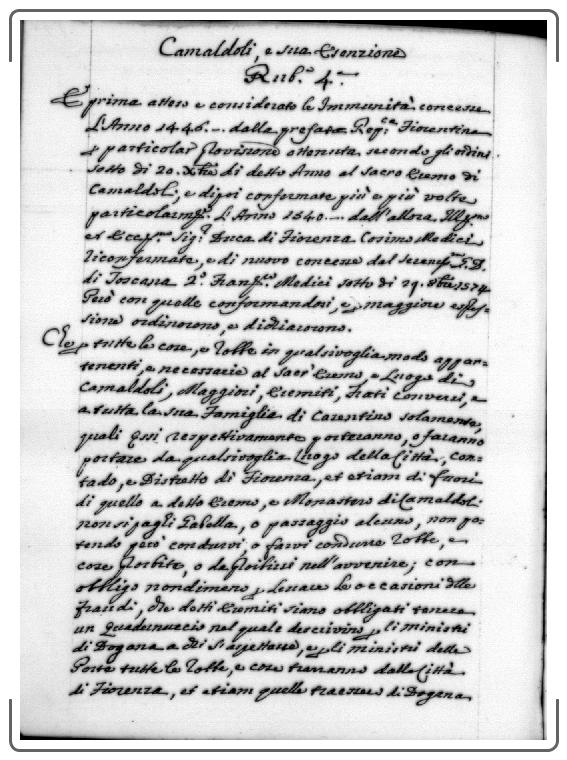 Camaldoli, e sua Esenzione
Rub.a 4.a
E prima atteso e considerato le Immunità concesse
L'Anno 1446. dalla prefata Rep.ca Fiorentina
p particolar provisione ottenuta secondo gli ordini
sotto dì 20. Xbre di detto Anno al Sacro Eremo di
Camaldoli, e dipoi confermate più e più volte
particolarm.e L'Anno 1540. dall'allora Ill.mo
et Ecc.mo Sig.r Duca di Fiorenza Cosimo Medici
riconfermate, e di nuovo concesse dal Seren.mo G. D.
di Toscana 2.o Fran.co Medici sotto dì 29. 8bre 1574
Però con quelle conformandosi, e p maggiore espres-
sione ordinorono, e dichiarorono.
Che p tutte le cose, e robbe in qualsivoglia modo appar-
tenenti, e necessarie al Sacr'Eremo, e Luogo di
Camaldoli, Maggiori, Eremiti, frati conversi, e
a tutta la sua Famiglia di Casentino solamente,
quali Essi respettivamente porteranno, o faranno
portare da qualsivoglia Luogo della Città, con-
tado, e Distretto di Fiorenza, et etiam di fuori
di quello a detto Eremo, e Monastero di Camaldoli
non si paghi Gabella, o passaggio alcuno, non po-
tendo però condurvi, o farvi condurre robbe, e
cose proibite, o da proibirsi nell'avvenire; con
obbligo nondimeno p levare le occasioni delle
fraudi, che detti Eremiti siano obbligati tenere
un Quadernuccio nel quale descrivino p li ministri
di Dogana a chi s'aspettasse, e p li ministri delle
Porte tutte le robbe, e cose trarranno dalla Città
di Fiorenza, et etiam quelle traessero di Dogana